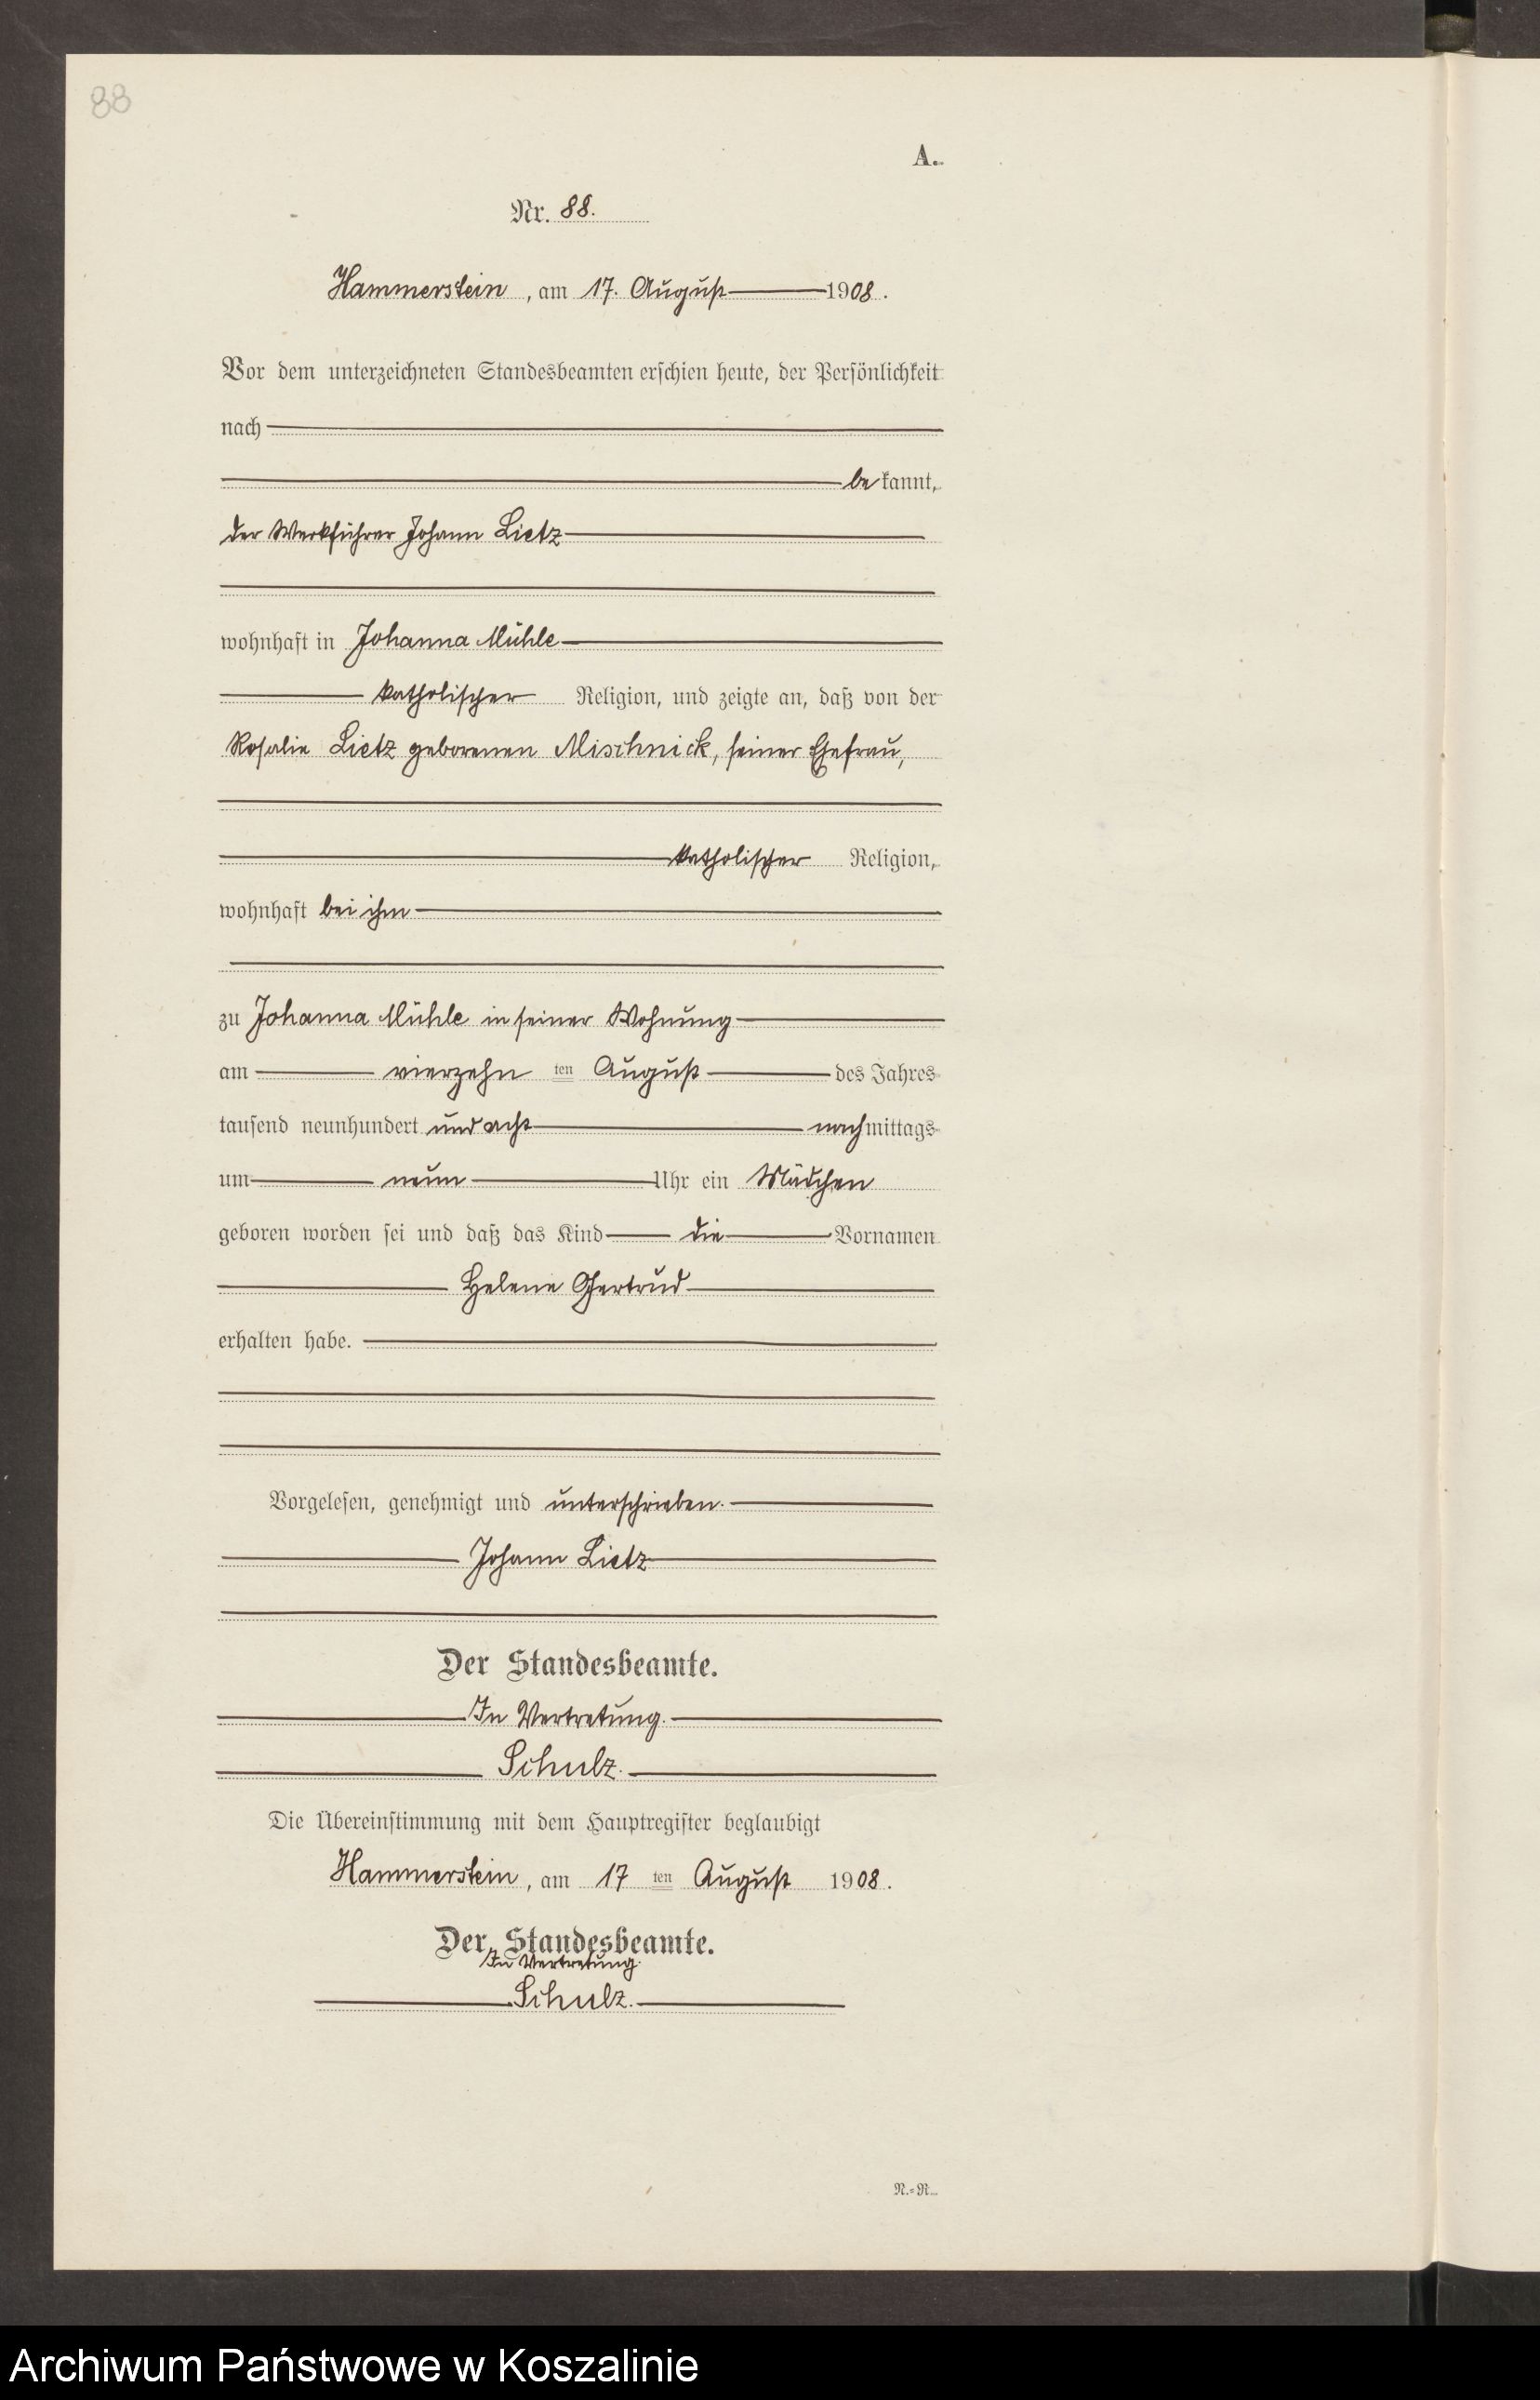 88
A.
Nr. 88.
Hammerstein, am 17. August 1908.
Vor dem unterzeichneten Standesbeamten erschien heute, der Persönlichkeit
nach
bekannt,
der Werkführer Johann Lietz
wohnhaft in Johanna Mühle
katholischer Religion, und zeigte an, daß von der
Rosalie Lietz geborenen Mischnick, seiner Ehefrau,
katholischer Religion,
wohnhaft bei ihm
zu Johanna Mühle in seiner Wohnung
am vierzehn ten August des Jahres
tausend neunhundert und acht nachmittags
um neun Uhr ein Mädchen
geboren worden sei und daß das Kind die Vornamen
Helene Gertrud
erhalten habe.
Vorgelesen, genehmigt und unterschrieben.
Johann Lietz
Der Standesbeamte.
In Vertretung.
Schulz.
Die Übereinstimmung mit dem Hauptregister beglaubigt
Hammerstein, am 17 ten August 1908.
Der Standesbeamte.
In Vertretung.
Schulz.
N.=R.
Archiwum Państwowe w Koszalinie